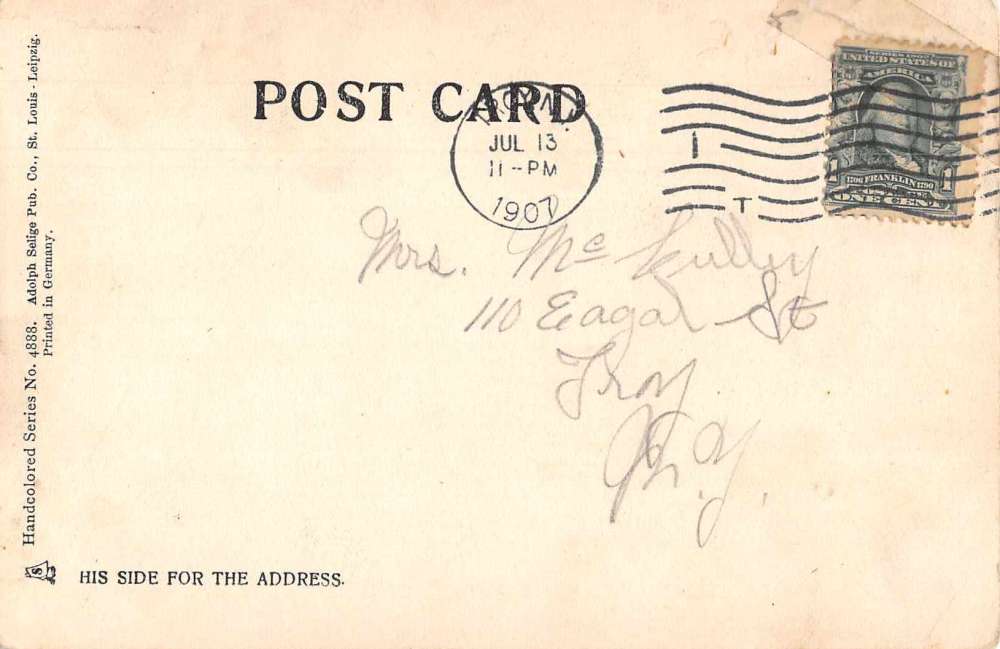 POST CARD
JUL 13
11-PM
1907
I
T
SERIES 1902
UNITED STATES OF
AMERICA
1 1706 FRANKLIN 1790 1
ONE CENT
Mrs. Mc
110 Eagar St
Troy
N.Y.
Handcolored Series No. 4888. Adolph Selige Pub. Co., St. Louis - Leipzig.
Printed in Germany.
S
HIS SIDE FOR THE ADDRESS.